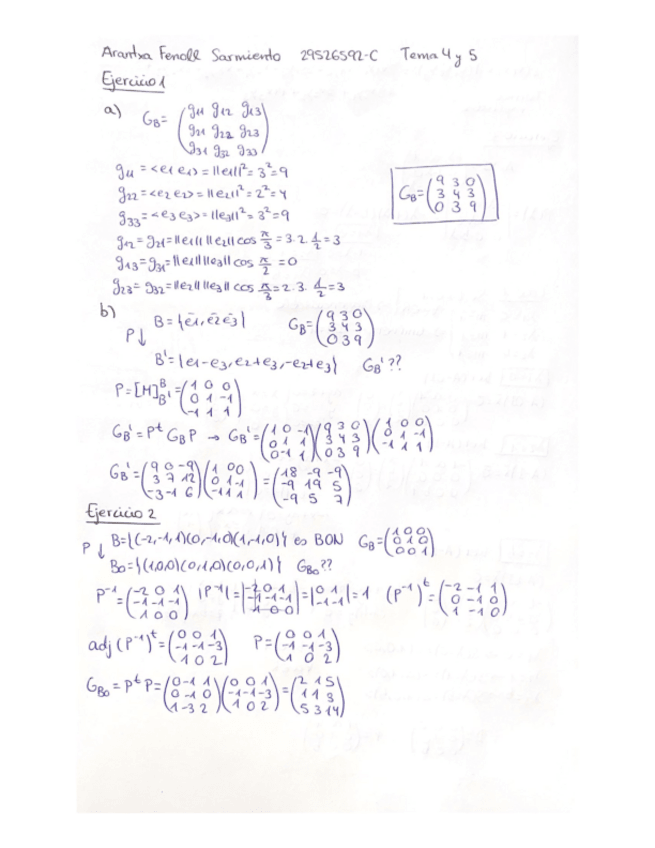 Arantxa Fenoll Sarmiento 29526592-C Tema 4 y 5
Ejercicio 1
a) G_B = (g11 g12 g13
g21 g22 g23
g31 g32 g33)
g11 = <e1 e1> = ||e1||² = 3² = 9
g22 = <e2 e2> = ||e2||² = 2² = 4
g33 = <e3 e3> = ||e3||² = 3² = 9
g12 = g21 = ||e1|| ||e2|| cos π/3 = 3·2·1/2 = 3
g13 = g31 = ||e1|| ||e3|| cos π/2 = 0
g23 = g32 = ||e2|| ||e3|| cos π/3 = 2·3·1/2 = 3
G_B = (9 3 0
3 4 3
0 3 9)
b)
P↓ B = {e1, e2 e3} G_B = (9 3 0
3 4 3
0 3 9)
B' = {e1-e3, e2+e3, -e2+e3} G_B' ??
P = [M]^B_B' = (1 0 0
0 1 -1
-1 1 1)
G_B' = P^t G_B P → G_B' = (1 0 -1
0 1 1
0 -1 1) (9 3 0
3 4 3
0 3 9) (1 0 0
0 1 -1
-1 1 1)
G_B' = (9 0 -9
3 7 12
-3 -1 6) (1 0 0
0 1 -1
-1 1 1) = (18 -9 -9
-9 19 5
-9 5 7)
Ejercicio 2
P↓ B = {(-2,-1,1)(0,-1,0)(1,-1,0)} es BON G_B = (1 0 0
0 1 0
0 0 1)
B0 = {(1,0,0)(0,1,0)(0,0,1)} G_B0 ??
P^-1 = (-2 0 1
-1 -1 -1
1 0 0) |P^-1| = |-2 0 1
-1 -1 -1
1 0 0| = |0 1
-1 -1| = 1 (P^-1)^t = (-2 -1 1
0 -1 0
1 -1 0)
adj (P^-1)^t = (0 0 1
-1 -1 -3
1 0 2) P = (0 0 1
-1 -1 -3
1 0 2)
G_B0 = P^t P = (0 -1 1
0 -1 0
1 -3 2) (0 0 1
-1 -1 -3
1 0 2) = (2 1 5
1 1 3
5 3 14)